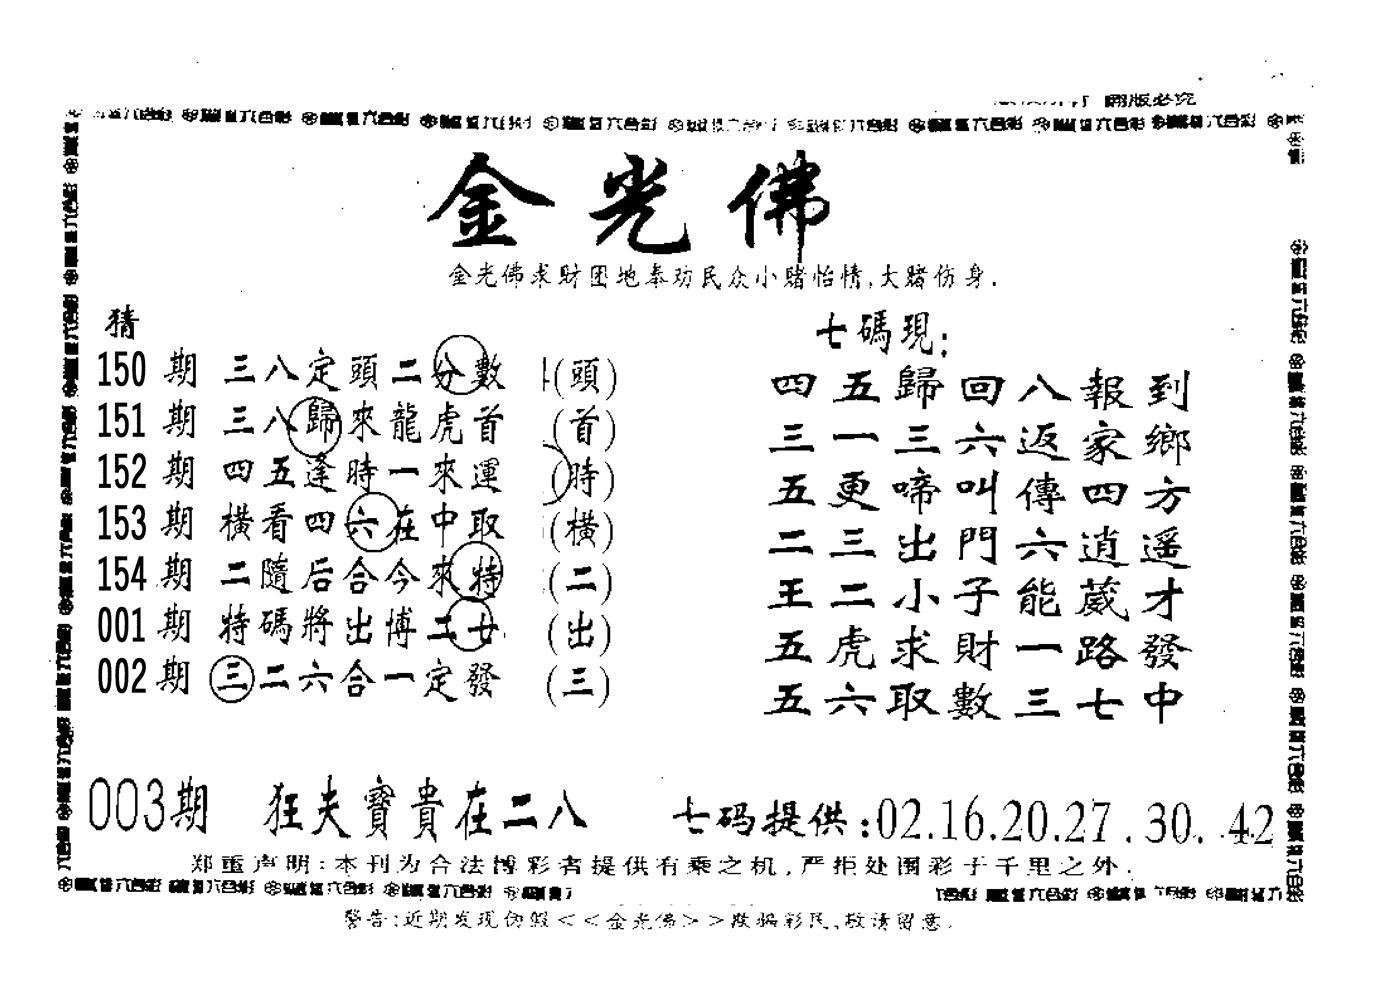 翻版必究
金光佛
金光佛求財团地奉劝民众小赌怡情,大赌伤身.
猜
150期 三八定頭二分數 (頭)
151期 三八歸來龍虎首 (首)
152期 四五逢時一來運 (時)
153期 橫看四六在中取 (橫)
154期 二隨后合今來特 (二)
001期 特碼將出博二廿 (出)
002期 三二六合一定發 (三)
七碼現:
四五歸回八報到
三一三六返家鄉
五更啼叫傳四方
二三出門六逍遥
王二小子能葳才
五虎求財一路發
五六取數三七中
003期 狂夫寶貴在二八 七码提供:02.16.20.27.30.42
郑重声明:本刊为合法博彩者提供有乘之机,严拒处围彩于千里之外.
警告:近期发现伪假<<金光佛>>欺骗彩民,敬请留意.